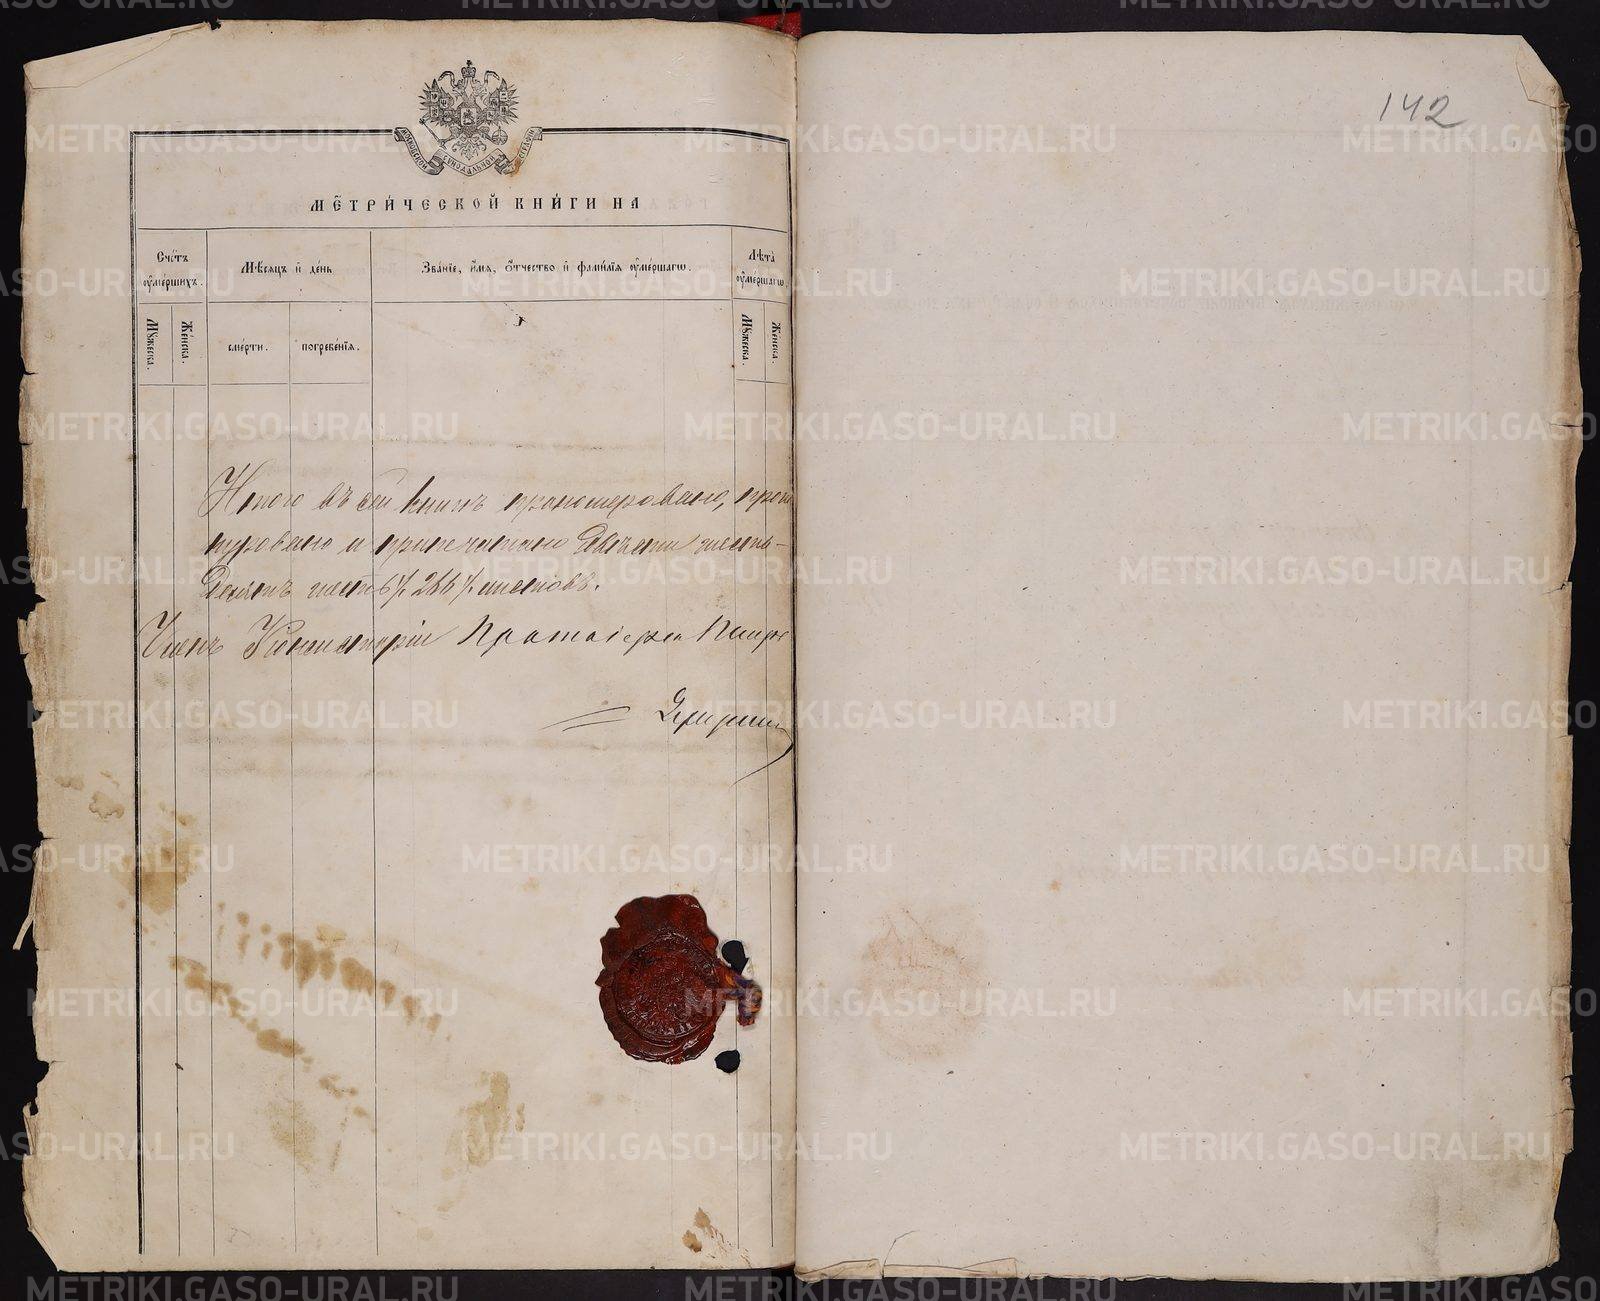 142
МОСКОВСКОЙ СѴНОДАЛЬНОЙ
МЕТРИ́ЧЕСКОЙ КНИ́ГИ НА
Сче́тъ ᲂу҆ме́ршихъ.
Мѣ́сяцъ и҆ де́нь
Зва́нїе, и҆́мя, ѻ҆́тчество и҆ фами́лїя ᲂу҆ме́ршагѡ.
Лѣ́та ᲂу҆ме́ршагѡ.
Мꙋ́жеска.
Же́нска.
сме́рти.
погребе́нїя.
Мꙋ́жеска.
Же́нска.
Итого въ сей книгѣ прономеровано, прош
нуровано и припечатано двѣсти шесть-
десятъ шесть /. 266 /. листовъ.
Членъ Консисторіи Протоіерей Петръ
METRIKI.GASO-URAL.RU